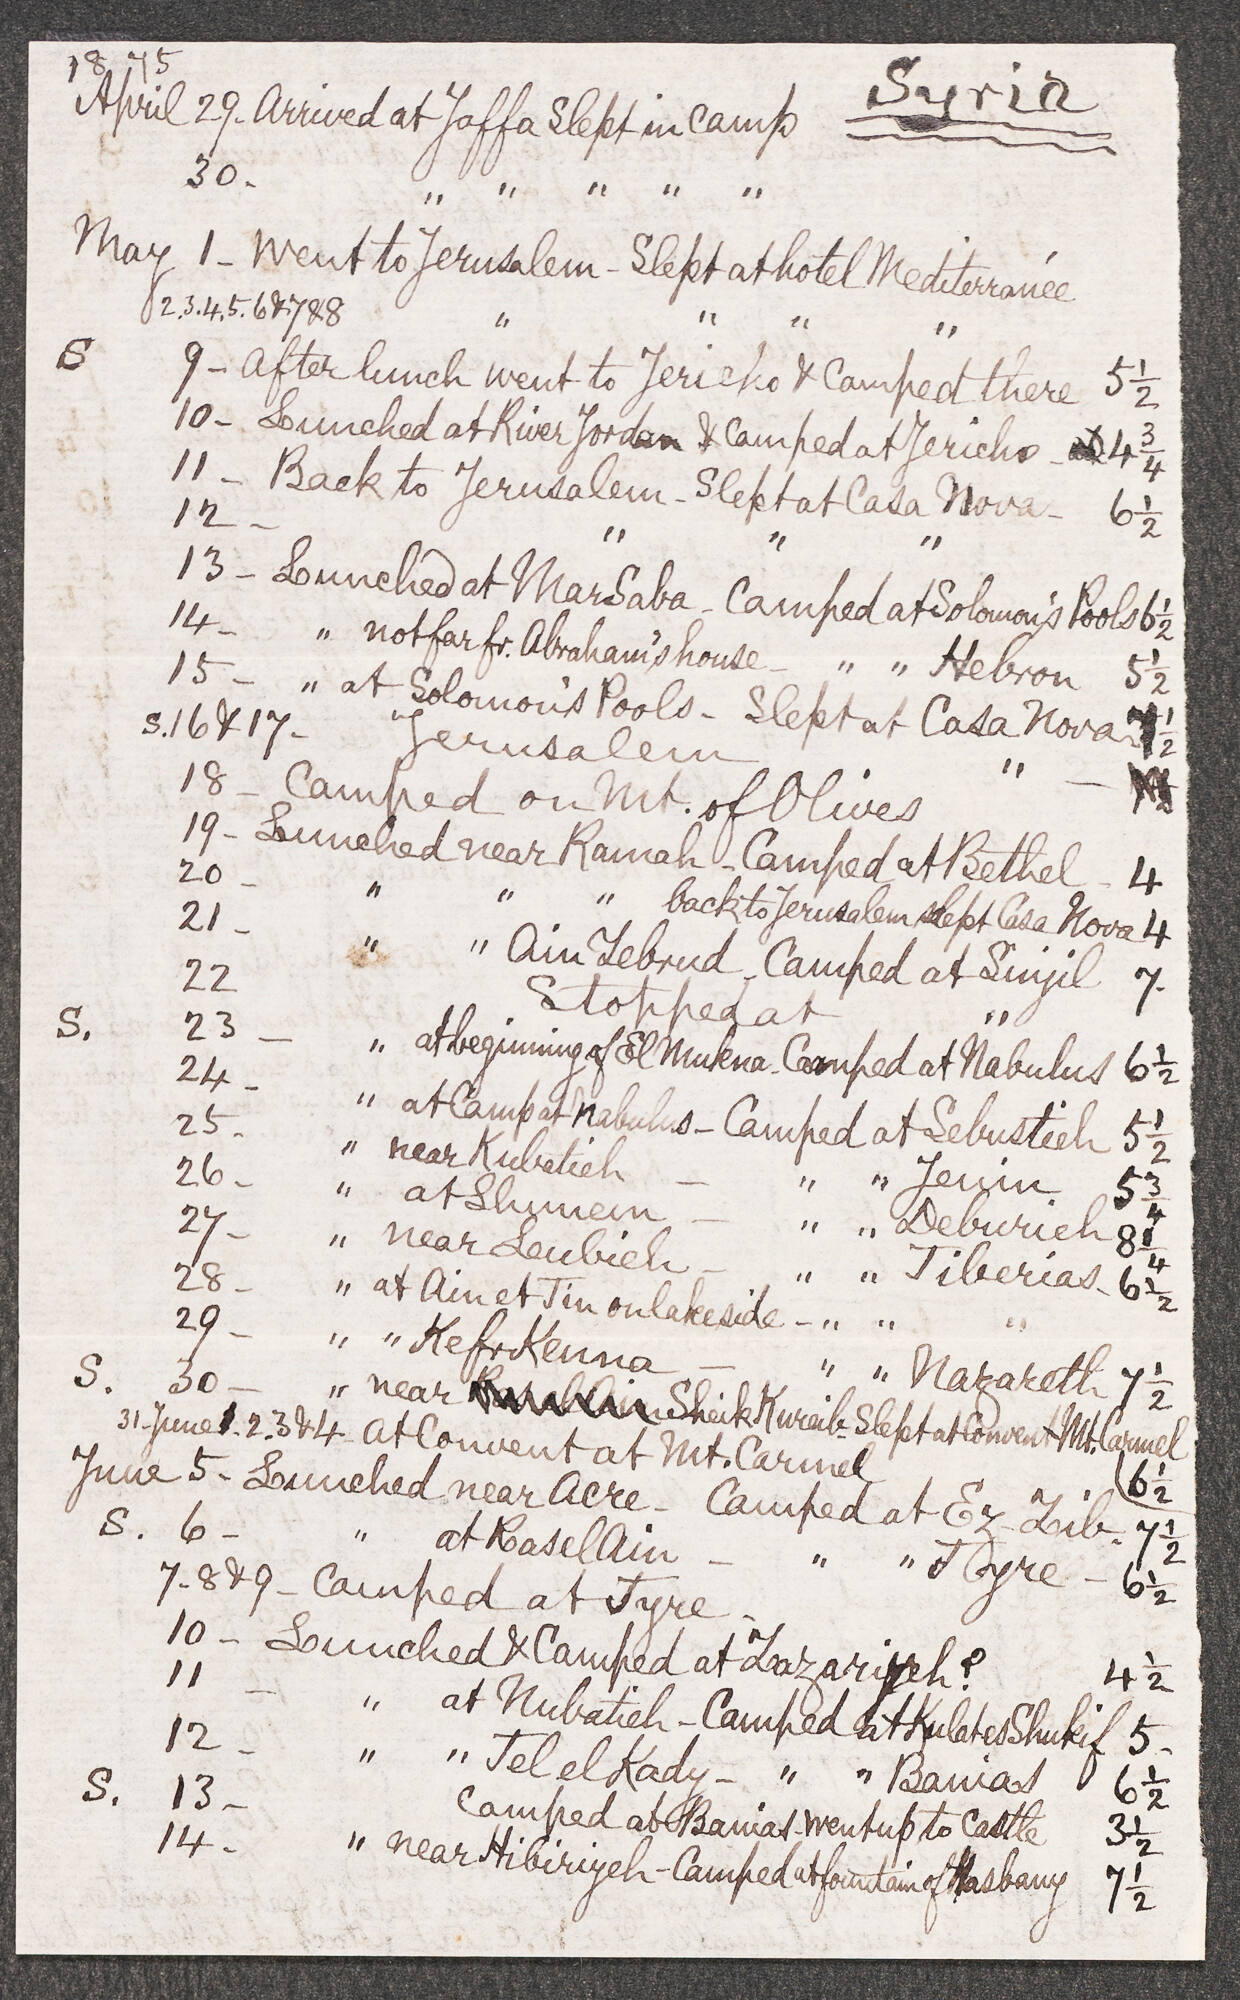 1875
Syria
April 29. Arrived at Jaffa Slept in camp
30. " " " " "
May 1 - Went to Jerusalem - Slept at hotel Mediterranée
2.3.4.5.6&7&8 " " " "
S 9 - After lunch went to Jericho & Camped there 5 1/2
10 - Lunched at River Jordan & Camped at Jericho - 4 3/4
11 - Back to Jerusalem - Slept at Casa Nova - 6 1/2
12 - " " "
13 - Lunched at Mar Saba - Camped at Solomon's Pools 6 1/2
14 - " not far fr. Abraham's house - " " Hebron 5 1/2
15 - " at Solomon's Pools - Slept at Casa Nova 1/2
S. 16 & 17 - Jerusalem " -
18 - Camped on Mt. of Olives
19 - Lunched near Ramah - Camped at Bethel - 4
20 - " " " back to Jerusalem slept Casa Nova 4
21 - " " Ain Zebrud - Camped at Sinjil 7.
22 Stopped at "
S. 23 - " at beginning of El Mukna - Camped at Nabulus 6 1/2
24 - " at Camp at Nabulus - Camped at Sebustieh 5 1/2
25. " near Kubatieh - " " Jenin 5 3/4
26 - " at Shunem - " " Deburieh 8 1/4
27 - " near Leubieh - " " Tiberias - 6 1/2
28 - " at Ain et Tin on lakeside - " " "
29 - " " Kefr Kenna - " " Nazareth 7 1/2
S. 30 - " near Sheik Kureib - Slept at Convent Mt. Carmel
31 - June 1. 2. 3 & 4 - At Convent at Mt. Carmel 6 1/2
June 5 - Lunched near Acre - Camped at Ez Zib - 7 1/2
S. 6 - " at Ras el Ain - " " Tyre - 6 1/2
7 - 8 & 9 - Camped at Tyre -
10 - Lunched & Camped at Zazariyeh? 4 1/2
11 - " at Nubatieh - Camped at Kulat es Shukif 5 -
12 - " " Tel el Kady - " " Banias 6 1/2
S. 13 - Camped at Banias - went up to Castle 3 1/2
14 - " near Hibiriyeh - Camped at fountain of Hasbany 7 1/2